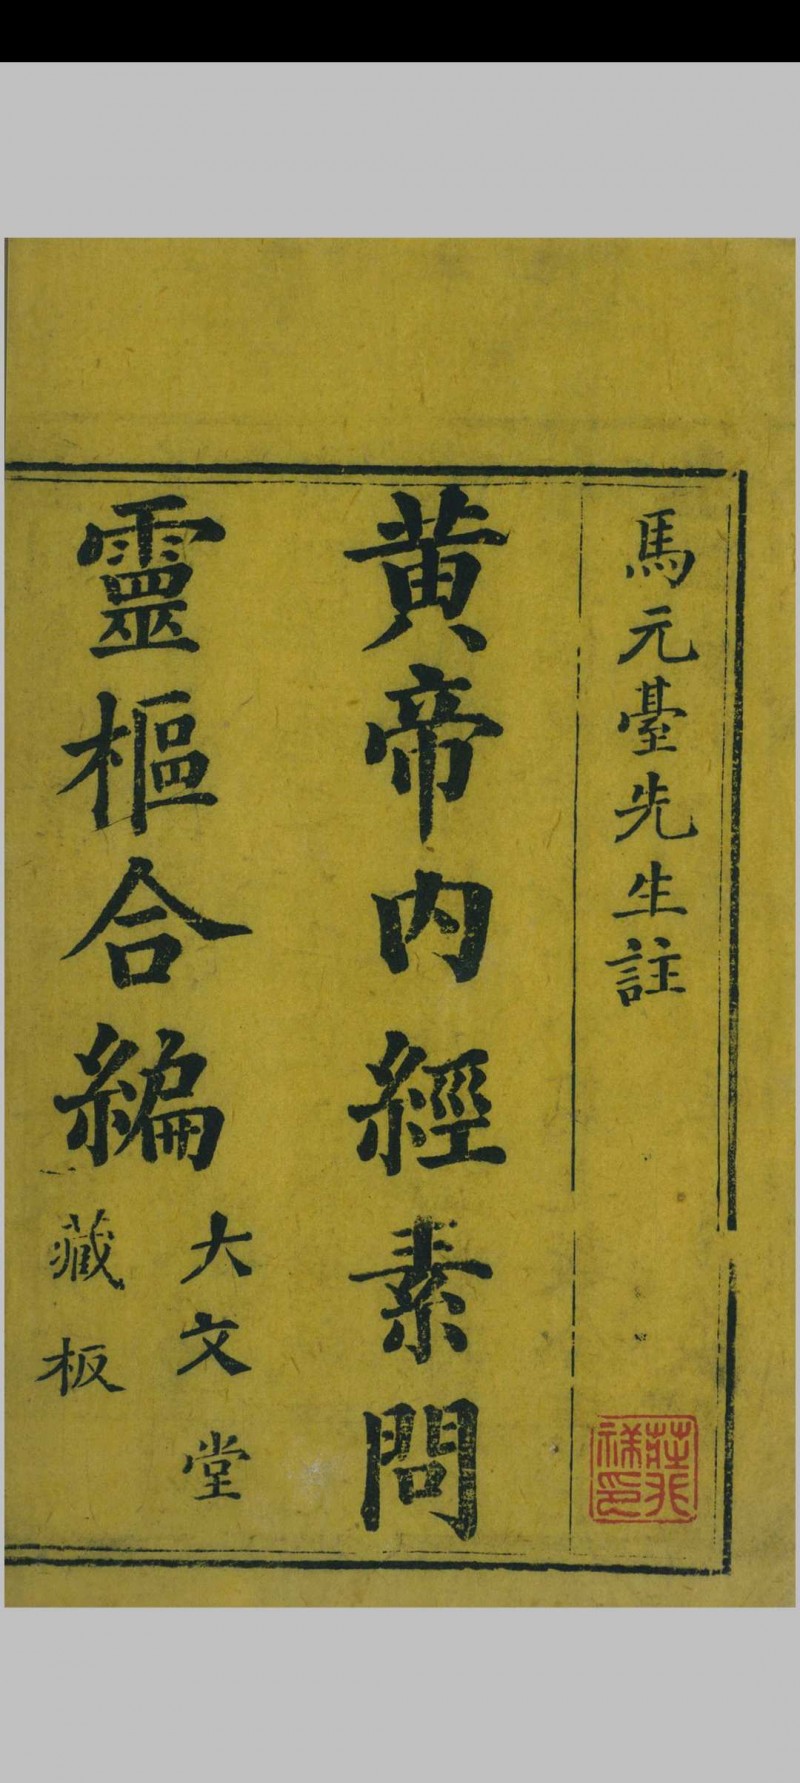 馬元臺先生註
黄帝内經素問
靈樞合編
大文堂
藏板